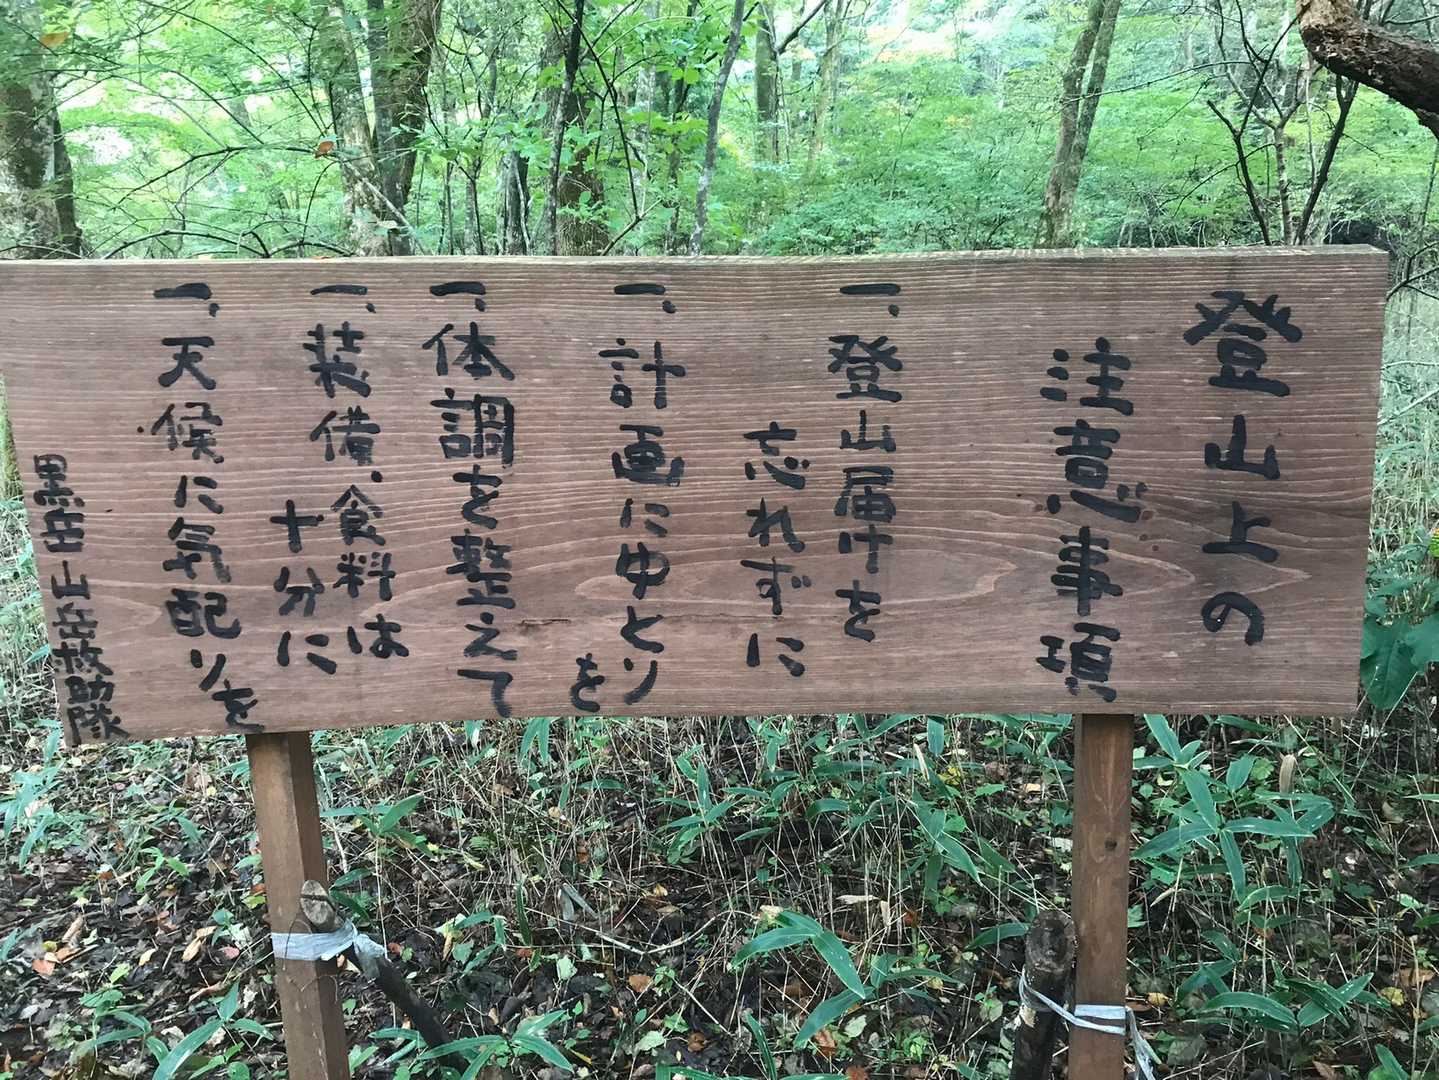 登山上の
注意事項
一、登山届けを
忘れずに
一、計画にゆとり
を
一、体調を整えて
一、装備、食料は
十分に
一、天候に気配りを
黒岳山岳救助隊